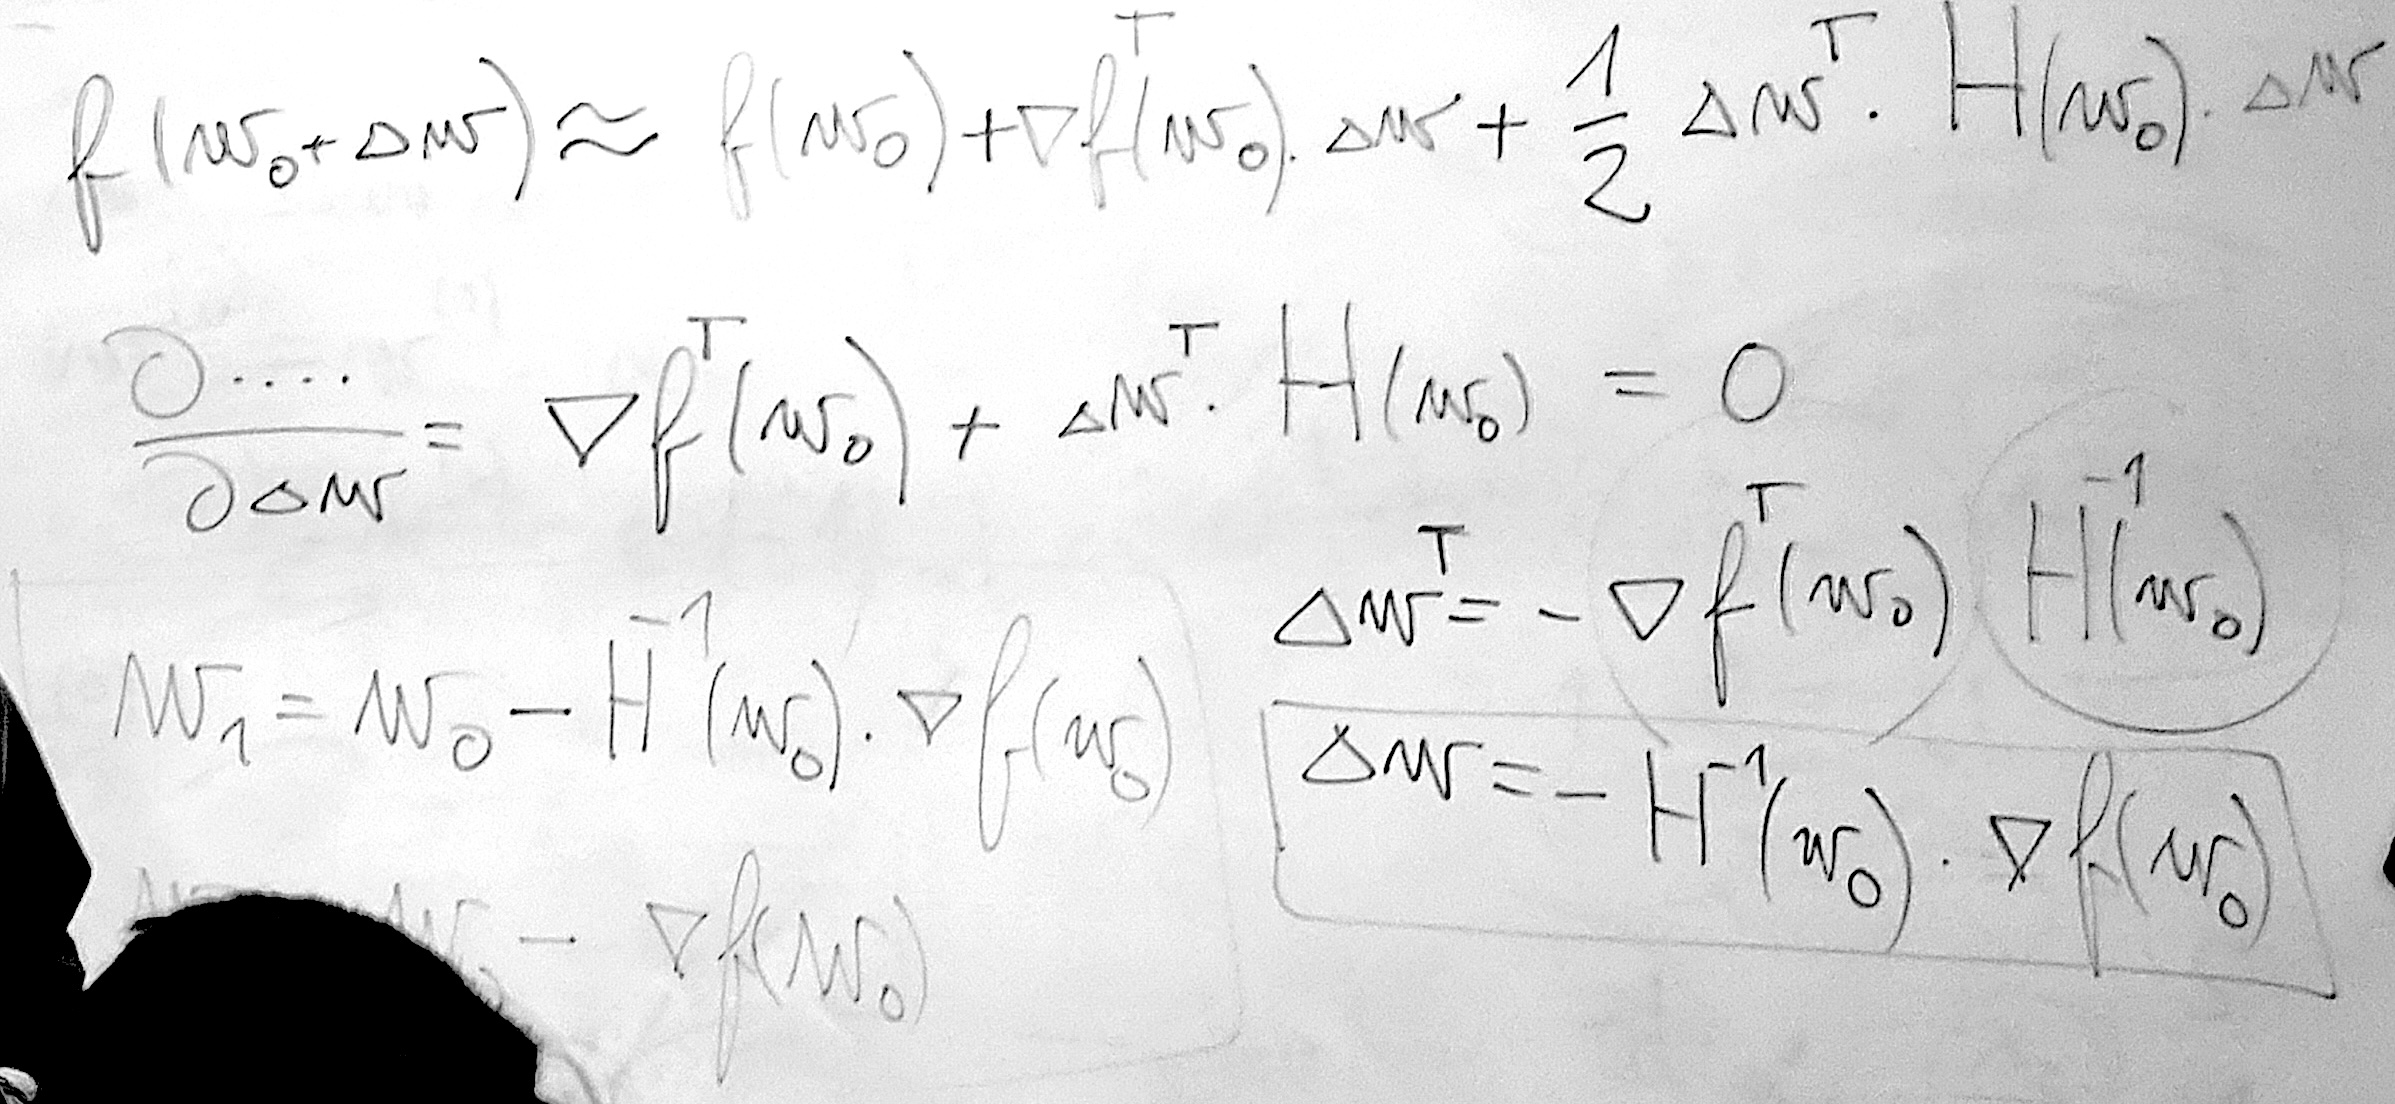 f(w₀+Δw) ≈ f(w₀)+∇fᵀ(w₀).Δw + 1/2 Δwᵀ. H(w₀). Δw
∂..../∂Δw = ∇fᵀ(w₀) + Δwᵀ. H(w₀) = 0
Δwᵀ = - ∇fᵀ(w₀) H⁻¹(w₀)
w₁ = w₀ - H⁻¹(w₀). ∇f(w₀)
Δw = - H⁻¹(w₀). ∇f(w₀)
- ∇f(w₀)